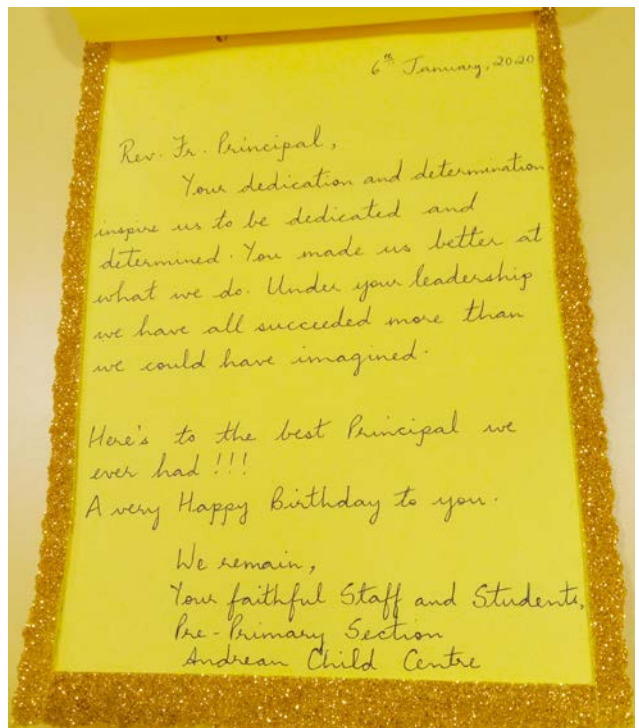 6th January, 2020
Rev. Fr. Principal,
Your dedication and determination
inspire us to be dedicated and
determined. You made us better at
what we do. Under your leadership
we have all succeeded more than
we could have imagined.
Here's to the best Principal we
ever had !!!
A very Happy Birthday to you.
We remain,
Your faithful Staff and Students,
Pre-Primary Section
Andrean Child Centre